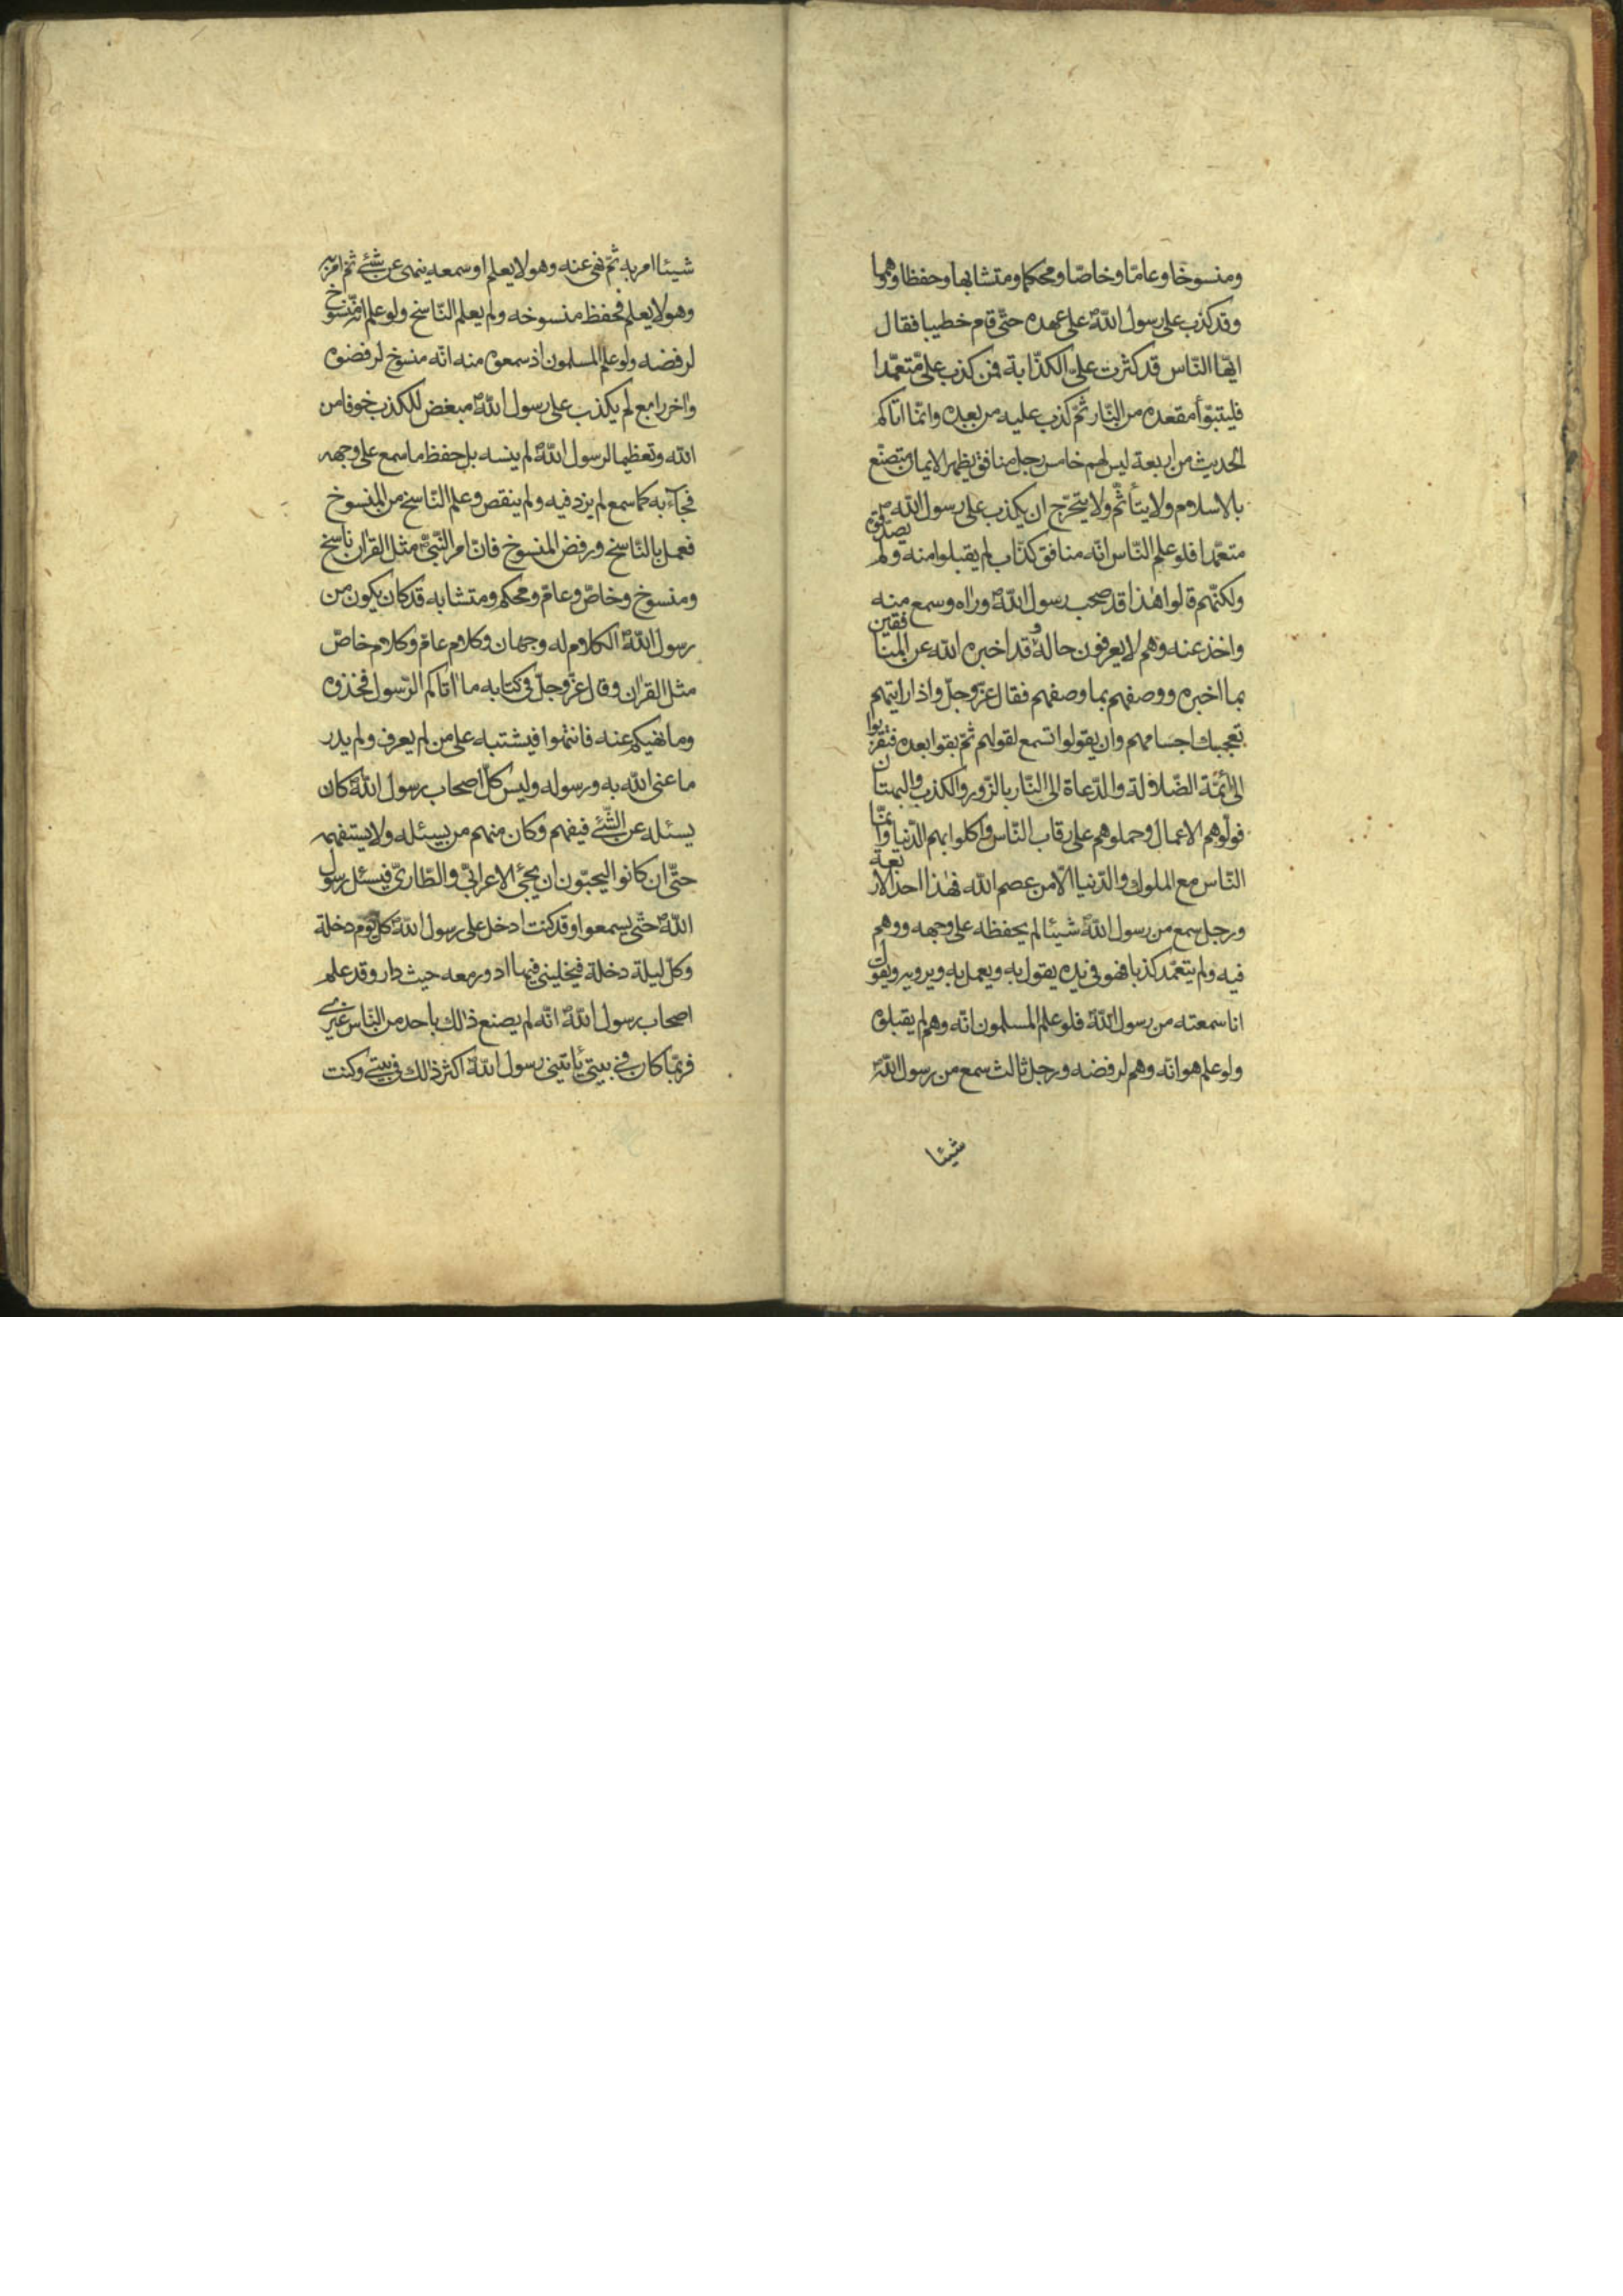 ومنسوخا وعامّا وخاصّا ومحكما ومتشابها وحفظا ووهما
وقد كذب على رسول اللّه ص على عهده حتّى قام خطيبا فقال
ايّها النّاس قد كثرت علىّ الكذّابة فمن كذب علىّ متعمّدا
فليتبوّأ مقعده من النّار ثمّ كذب عليه من بعده وانّما اتاكم
الحديث من اربعة ليس لهم خامس رجل منافق يظهر الايمان متصنّع
بالاسلام ولا يتأثّم ولا يتحرّج ان يكذب على رسول اللّه ص
متعمّدا فلو علم النّاس انّه منافق كذّاب لم يقبلوا منه ولم يصدّقوه
ولكنّهم قالوا هذا قد صحب رسول اللّه ص وراه وسمع منه
واخذ عنه وهم لا يعرفون حاله وقد اخبره اللّه عن المنافقين
بما اخبره ووصفهم بما وصفهم فقال عزّ وجلّ واذا رايتهم
تعجبك اجسامهم وان يقولوا تسمع لقولهم ثمّ بقوا بعده فتقرّبوا
الى أئمّة الضّلالة والدّعاة الى النّار بالزّور والكذب والبهتان
فولّوهم الاعمال وحملوهم على رقاب النّاس واكلوا بهم الدّنيا وانّما
النّاس مع الملوك والدّنيا الّا من عصم اللّه فهذا احد الاربعة
ورجل سمع من رسول اللّه ص شيئا لم يحفظه على وجهه ووهم
فيه ولم يتعمّد كذبا فهو فى يده يقول به ويعمل به ويرويه ويقول
انا سمعته من رسول اللّه ص فلو علم المسلمون انّه وهم لم يقبلوه
ولو علم هو انّه وهم لرفضه ورجل ثالث سمع من رسول اللّه ص
شيئا
شيئا امر به ثمّ نهى عنه وهو لا يعلم او سمعه ينهى عن شئ ثمّ امر به
وهو لا يعلم فحفظ منسوخه ولم يعلم النّاسخ ولو علم انّه منسوخ
لرفضه ولو علم المسلمون اذ سمعوه منه انّه منسوخ لرفضوه
واخر رابع لم يكذب على رسول اللّه ص مبغض للكذب خوفا من
اللّه وتعظيما لرسول اللّه ص لم ينسه بل حفظ ما سمع على وجهه
فجآء به كما سمع لم يزد فيه ولم ينقص وعلم النّاسخ من المنسوخ
فعمل بالنّاسخ ورفض المنسوخ فانّ امر النّبىّ ص مثل القران ناسخ
ومنسوخ وخاصّ وعامّ ومحكم ومتشابه قد كان يكون من
رسول اللّه ص الكلام له وجهان وكلام عامّ وكلام خاصّ
مثل القران وقال عزّ وجلّ فى كتابه ما اتاكم الرّسول فخذوه
وما نهيكم عنه فانتهوا فيشتبه على من لم يعرف ولم يدر
ما عنى اللّه به ورسوله وليس كلّ اصحاب رسول اللّه ص كان
يسئله عن الشّئ فيفهم وكان منهم من يسئله ولا يستفهمه
حتّى ان كانوا ليحبّون ان يجئ الاعرابىّ والطّارىّ فيسئل رسول
اللّه ص حتّى يسمعوا وقد كنت ادخل على رسول اللّه ص كلّ يوم دخلة
وكلّ ليلة دخلة فيخلينى فيها ادور معه حيث دار وقد علم
اصحاب رسول اللّه ص انّه لم يصنع ذلك باحد من النّاس غيرى
فربّما كان فى بيتى يأتينى رسول اللّه ص اكثر ذلك فى بيتى وكنت